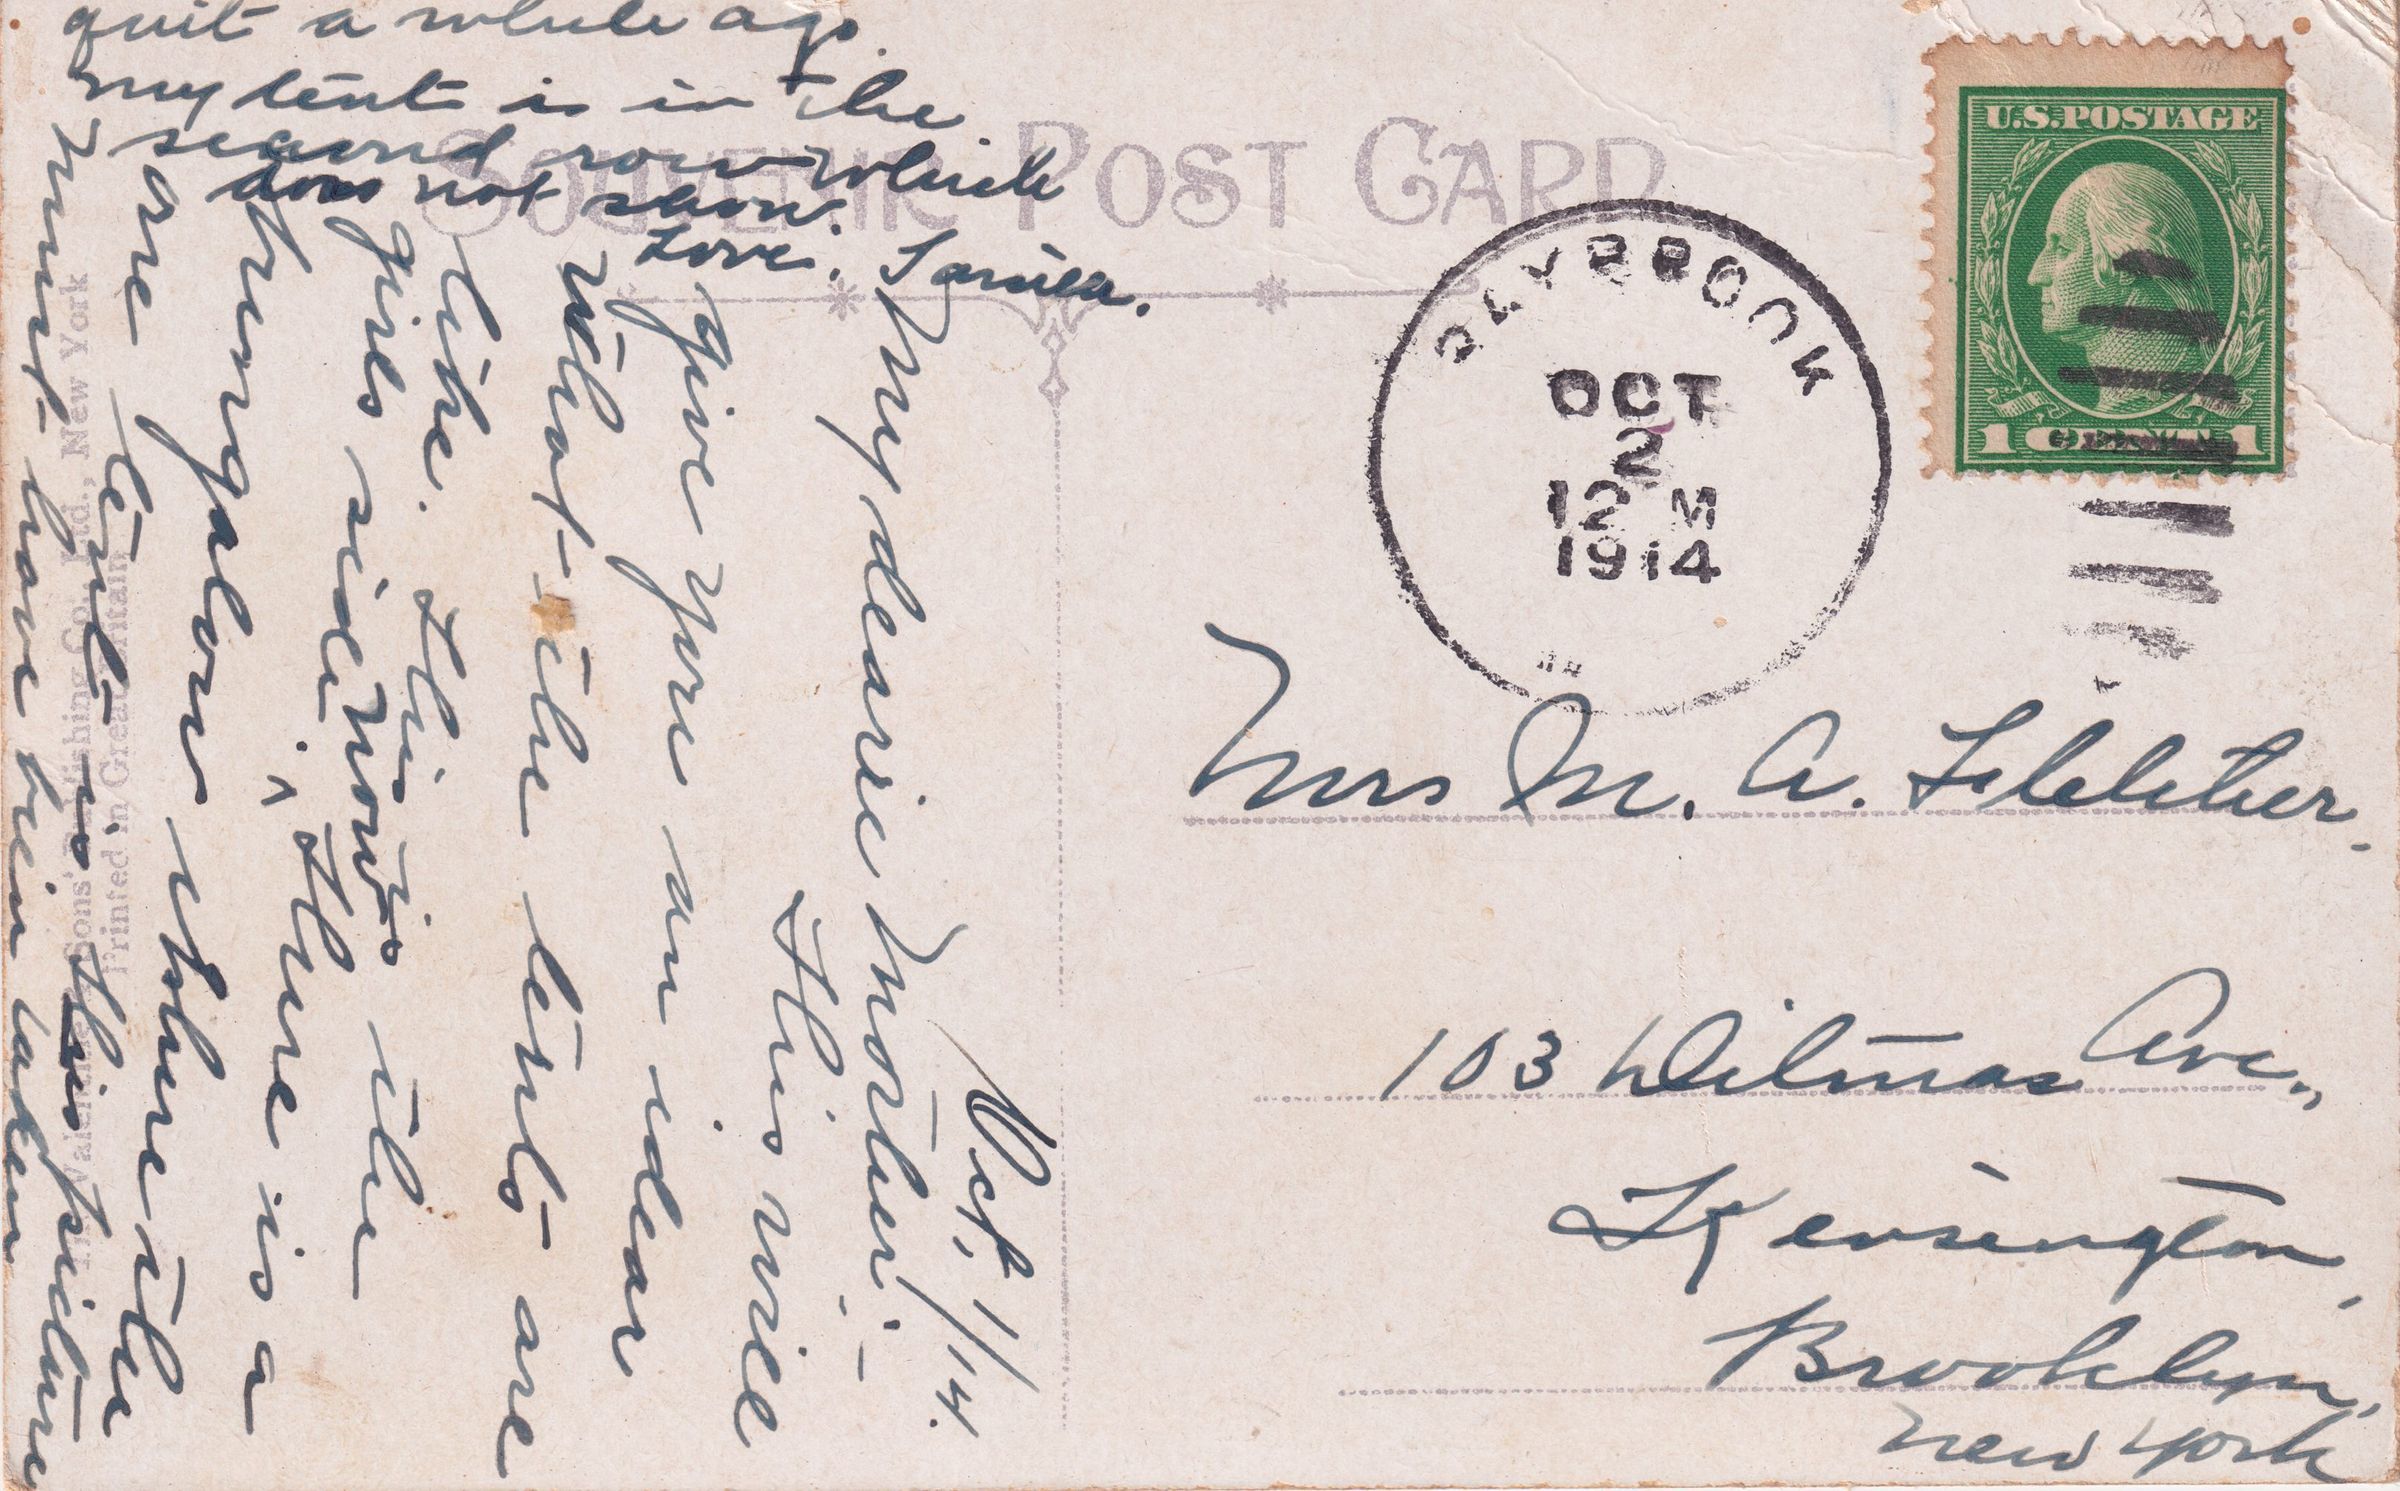 SOUVENIR POST CARD
U.S. POSTAGE
1 CENT 1
SAYBROOK
OCT
2
12 M
1914
Oct, 1/14.
My dearie Mother:—
This will
give you an idear
what the tents are
like. This is the
girls side. now
There is a
bungalow where the
are tent is this picture
must have bein taken
quit a while ago.
my tent is in the
second row which
does not show.
Love.
Mrs M. A. Fletcher.
103 Ditmas Ave.,
Kensington,
Brooklyn,
New York
Valentine & Sons' Publishing Co., Ltd., New York
Printed in Great Britain